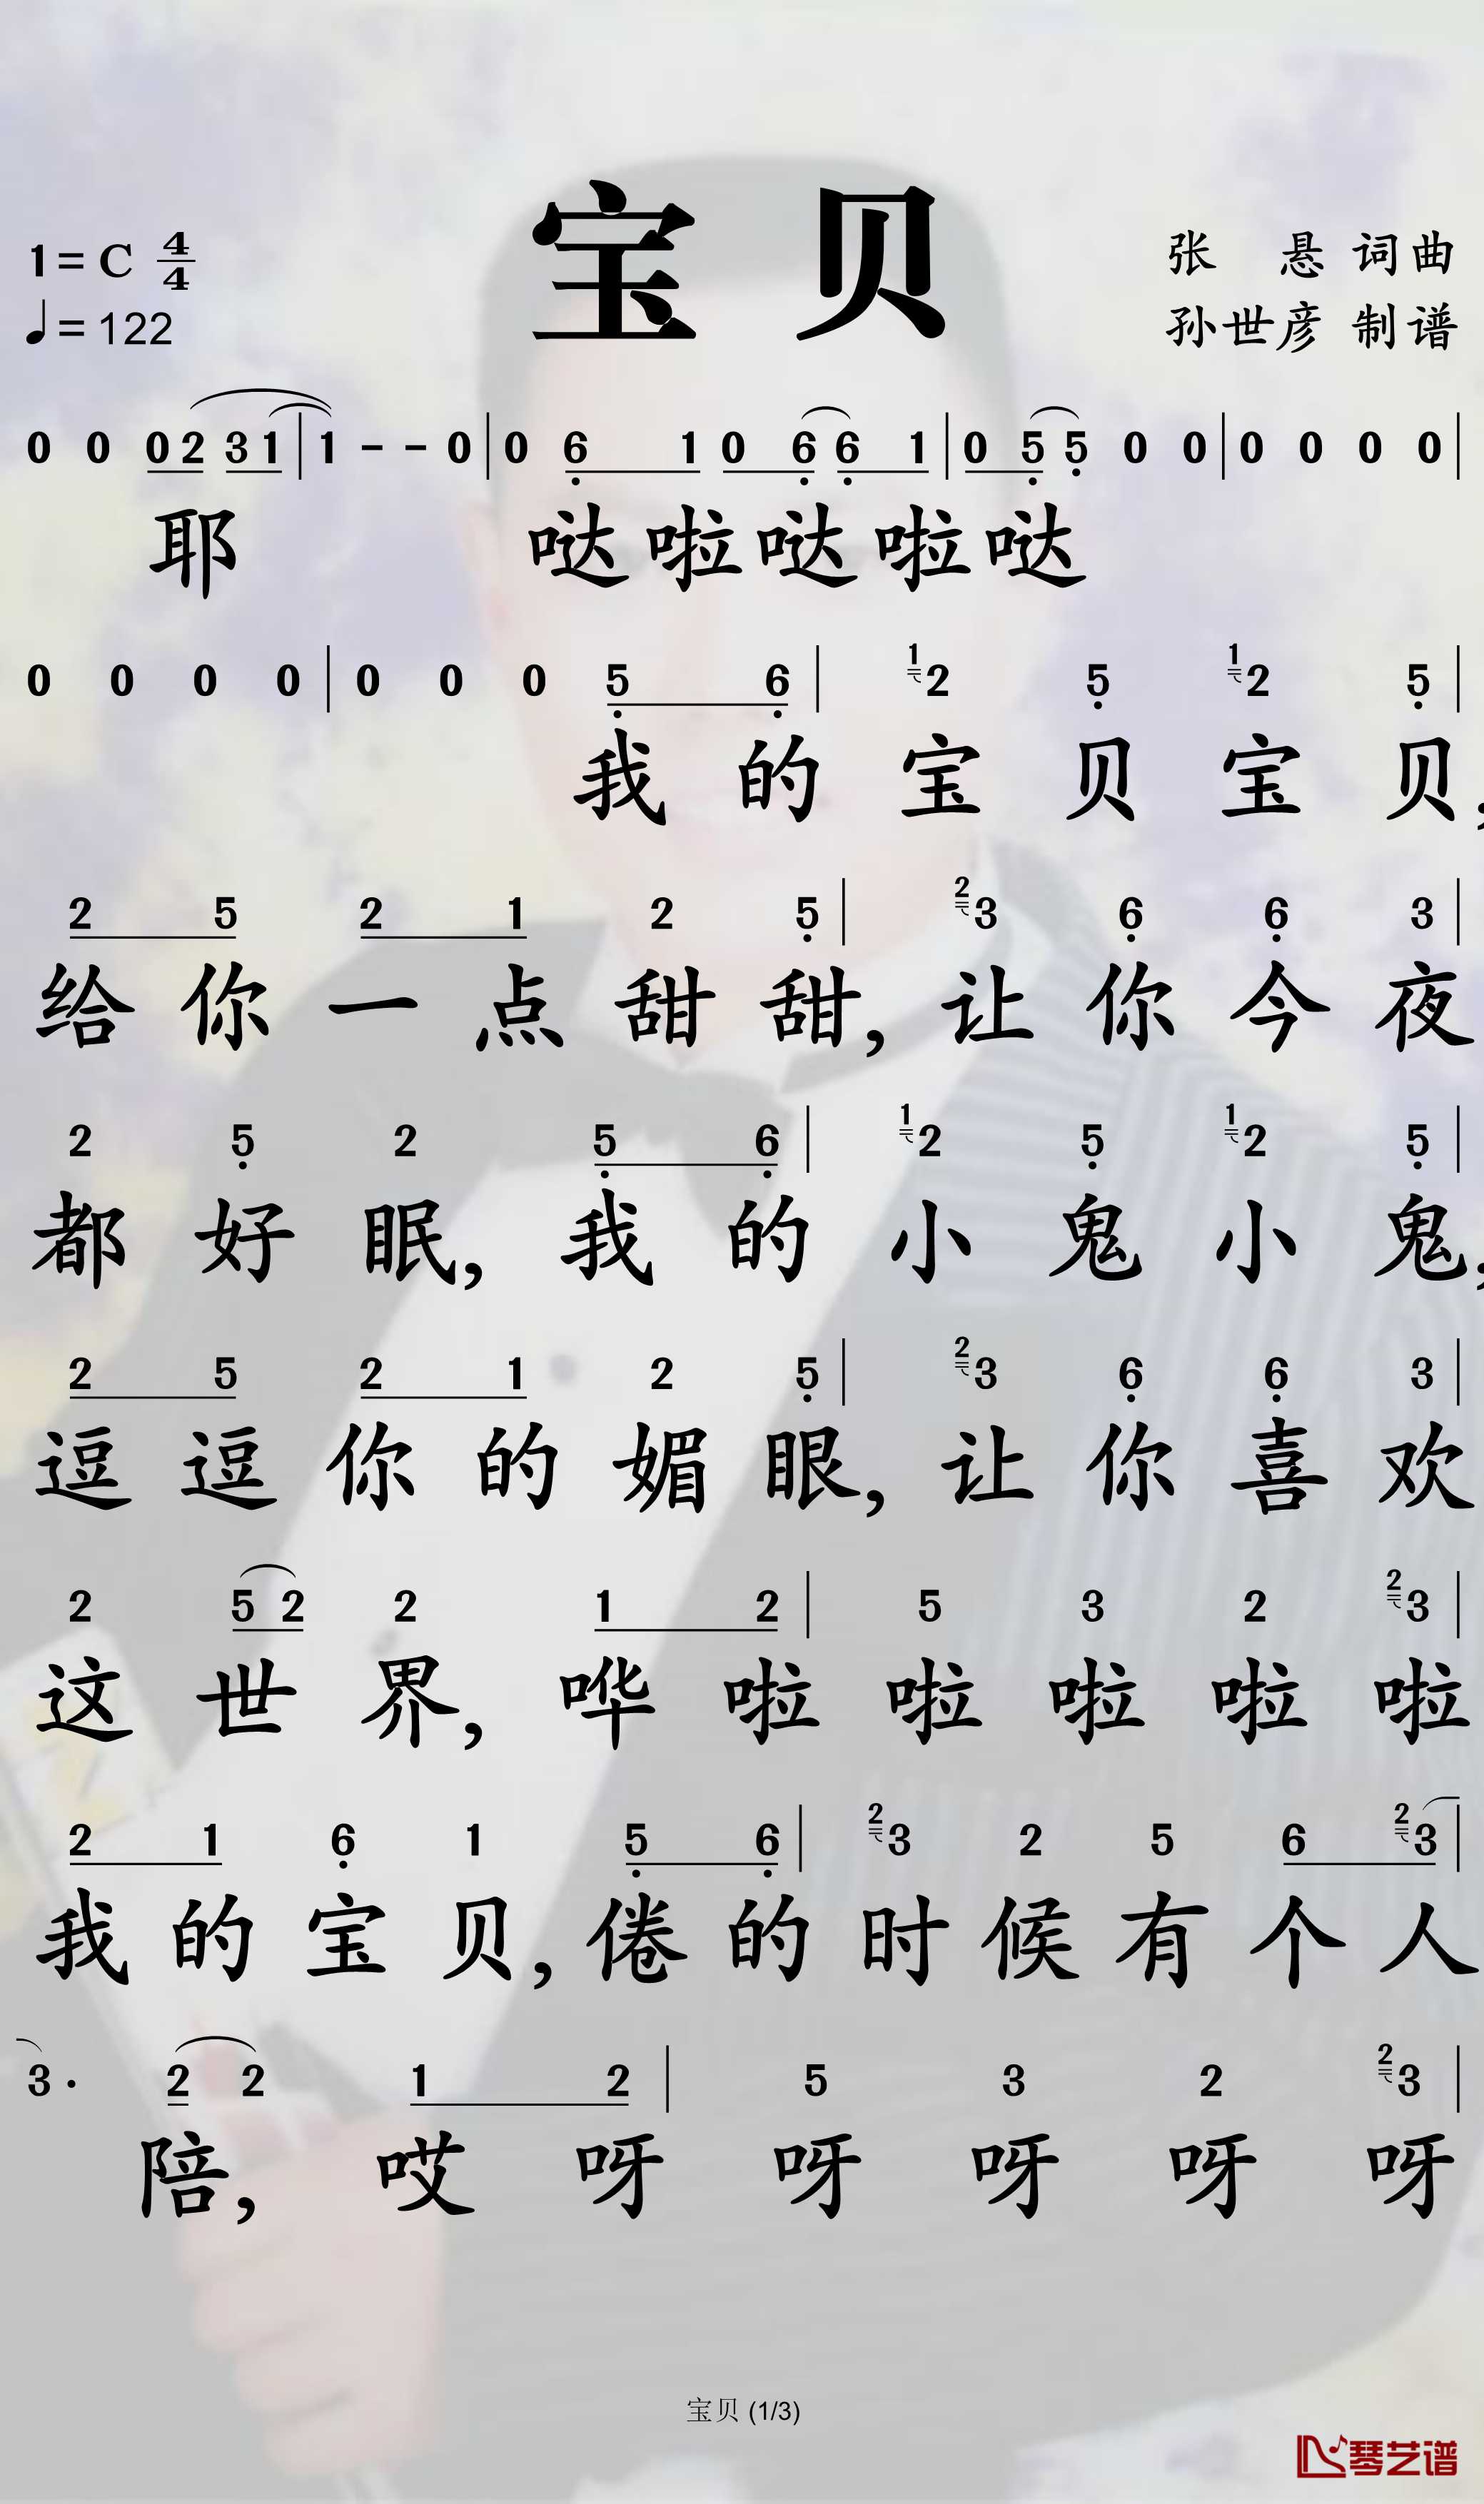 宝贝
1=C 4/4
张 悬 词曲
♩=122
孙世彦 制谱
0 0 0 2 3 1 | 1 - - 0 | 0 6 1 0 6 6 1 | 0 5 5 0 0 | 0 0 0 0 |
耶 哒啦哒啦哒
0 0 0 0 | 0 0 0 5 6 | 1 2 5 1 2 5 |
我的宝贝宝贝,
2 5 2 1 2 5 | 2 3 6 6 3 |
给你一点甜甜,让你今夜
2 5 2 5 6 | 1 2 5 1 2 5 |
都好眠,我的小鬼小鬼,
2 5 2 1 2 5 | 2 3 6 6 3 |
逗逗你的媚眼,让你喜欢
2 5 2 2 1 2 | 5 3 2 2 3 |
这世界,哗啦啦啦啦啦
2 1 6 1 5 6 | 2 3 2 5 6 2 3 |
我的宝贝,倦的时候有个人
3 · 2 2 1 2 | 5 3 2 2 3 |
陪,哎呀呀呀呀呀
宝贝 (1/3)
琴艺谱